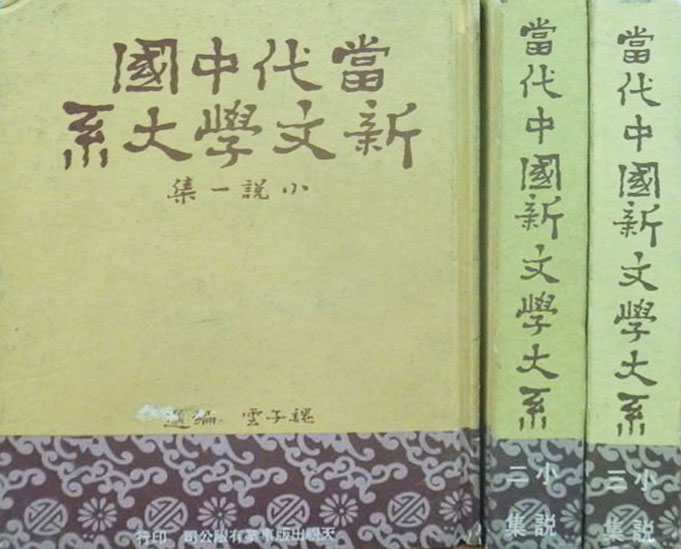 當代中國
新文學大系
小說一集
魏子雲 編選
天視出版事業有限公司 印行
當代中國新文學大系
小說二集
當代中國新文學大系
小說三集